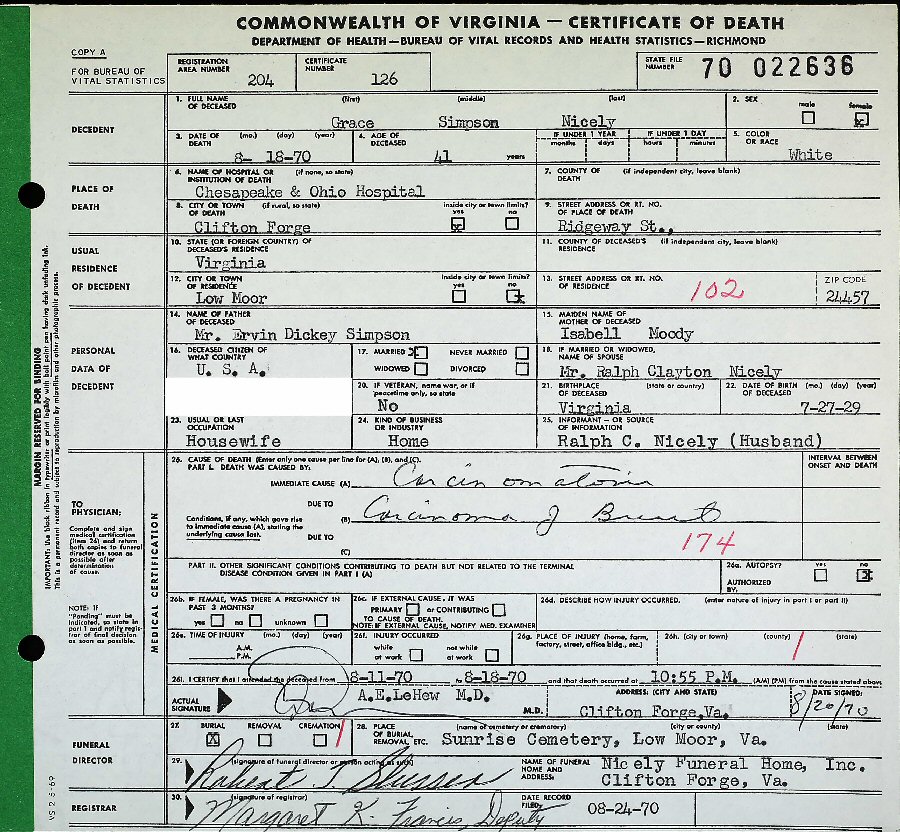 COMMONWEALTH OF VIRGINIA — CERTIFICATE OF DEATH
DEPARTMENT OF HEALTH—BUREAU OF VITAL RECORDS AND HEALTH STATISTICS—RICHMOND
COPY A
FOR BUREAU OF VITAL STATISTICS
REGISTRATION AREA NUMBER 204
CERTIFICATE NUMBER 126
STATE FILE NUMBER 70 022636
DECEDENT
1. FULL NAME OF DECEASED (first) (middle) (last)
Grace Simpson Nicely
2. SEX male female x
3. DATE OF DEATH (mo.) (day) (year)
8- 18-70
4. AGE OF DECEASED 41 years
IF UNDER 1 YEAR months days
IF UNDER 1 DAY hours minutes
5. COLOR OR RACE White
PLACE OF DEATH
6. NAME OF HOSPITAL OR INSTITUTION OF DEATH (if none, so state)
Chesapeake & Ohio Hospital
7. COUNTY OF DEATH (if independent city, leave blank)
8. CITY OR TOWN OF DEATH (if rural, so state) inside city or town limits? yes x no
Clifton Forge
9. STREET ADDRESS OR RT. NO. OF PLACE OF DEATH
Ridgeway St.,
USUAL RESIDENCE OF DECEDENT
10. STATE (OR FOREIGN COUNTRY) OF DECEASED'S RESIDENCE
Virginia
11. COUNTY OF DECEASED'S RESIDENCE (if independent city, leave blank)
12. CITY OR TOWN OF RESIDENCE inside city or town limits? yes no x
Low Moor
13. STREET ADDRESS OR RT. NO. OF RESIDENCE
102
ZIP CODE
24457
PERSONAL DATA OF DECEDENT
14. NAME OF FATHER OF DECEASED
Mr. Ervin Dickey Simpson
15. MAIDEN NAME OF MOTHER OF DECEASED
Isabell Moody
16. DECEASED CITIZEN OF WHAT COUNTRY
U. S. A.
17. MARRIED X NEVER MARRIED
WIDOWED DIVORCED
18. IF MARRIED OR WIDOWED, NAME OF SPOUSE
Mr. Ralph Clayton Nicely
20. IF VETERAN, name war, or if peacetime only, so state
No
21. BIRTHPLACE OF DECEASED (state or country)
Virginia
22. DATE OF BIRTH (mo.) (day) (year) OF DECEASED
7-27-29
23. USUAL OR LAST OCCUPATION
Housewife
24. KIND OF BUSINESS OR INDUSTRY
Home
25. INFORMANT - OR SOURCE OF INFORMATION
Ralph C. Nicely (Husband)
MARGIN RESERVED FOR BINDING
IMPORTANT: Use black ribbon in typewriter or print legibly with ball point pen having dark unfading ink.
This is a permanent record and subject to reproduction by microfilm and other photographic process.
TO PHYSICIAN:
Complete and sign medical certification (item 26) and return both copies to funeral director as soon as possible after determination of cause.
NOTE: If "Pending" must be indicated, so state in part I and notify registrar of final decision as soon as possible.
MEDICAL CERTIFICATION
26. CAUSE OF DEATH (Enter only one cause per line for (A), (B), and (C).
PART I. DEATH WAS CAUSED BY:
INTERVAL BETWEEN ONSET AND DEATH
IMMEDIATE CAUSE (A) Carcinomatosis
DUE TO
Conditions, if any, which gave rise to immediate cause (A), stating the underlying cause last.
(B) Carcinoma of Breast
DUE TO
174
(C)
PART II. OTHER SIGNIFICANT CONDITIONS CONTRIBUTING TO DEATH BUT NOT RELATED TO THE TERMINAL DISEASE CONDITION GIVEN IN PART I (A)
26a. AUTOPSY? yes no x
AUTHORIZED BY:
26b. IF FEMALE, WAS THERE A PREGNANCY IN PAST 3 MONTHS?
yes no unknown
26c. IF EXTERNAL CAUSE, IT WAS
PRIMARY or CONTRIBUTING
TO CAUSE OF DEATH.
NOTE: IF EXTERNAL CAUSE, NOTIFY MED. EXAMINER
26d. DESCRIBE HOW INJURY OCCURRED. (enter nature of injury in part I or part II)
26e. TIME OF INJURY (mo.) (day) (year)
A.M.
P.M.
26f. INJURY OCCURRED
while at work not while at work
26g. PLACE OF INJURY (home, farm, factory, street, office bldg., etc.)
26h. (city or town) (county) (state)
26i. I CERTIFY that I attended the deceased from 8-11-70 to 8-18-70 and that death occurred at 10:55 P.M. (AM) (PM) from the cause stated above
ACTUAL SIGNATURE
A.E.LeHew M.D.
M.D.
ADDRESS: (CITY AND STATE)
Clifton Forge, Va.
DATE SIGNED:
8/20/70
FUNERAL DIRECTOR
27. BURIAL X REMOVAL CREMATION
28. PLACE OF BURIAL, REMOVAL, ETC. (name of cemetery or crematory) (city or county) (state)
Sunrise Cemetery, Low Moor, Va.
29. (signature of funeral director or person acting as such)
Robert T. Slusser
NAME OF FUNERAL HOME AND ADDRESS:
Nicely Funeral Home, Inc.
Clifton Forge, Va.
REGISTRAR
30. (signature of registrar)
Margaret K. Francis, Deputy
DATE RECORD FILED:
08-24-70
VS 2 5-69